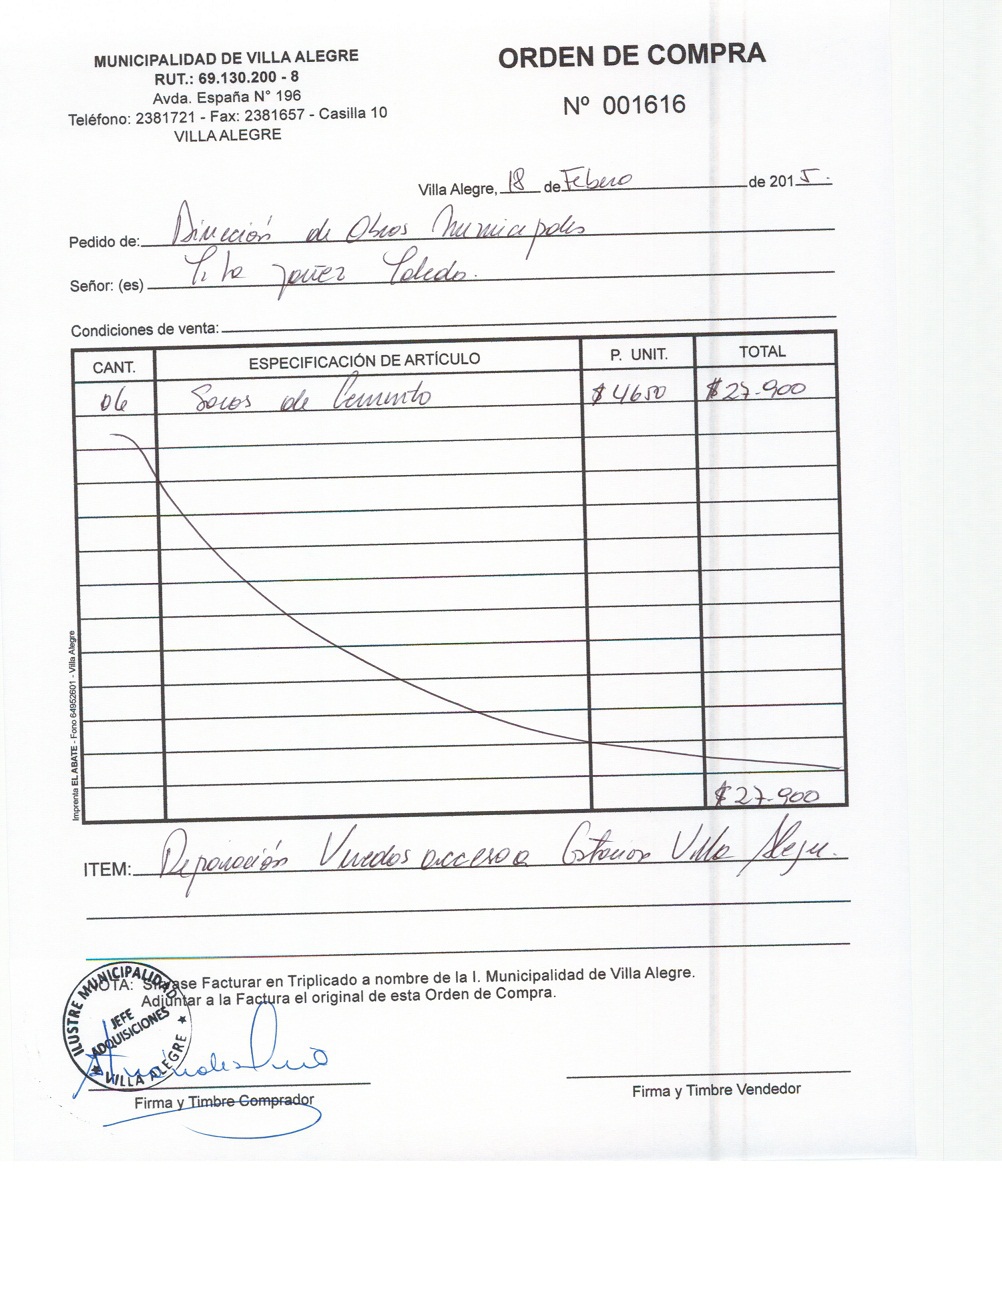 MUNICIPALIDAD DE VILLA ALEGRE
RUT.: 69.130.200 - 8
Avda. España N° 196
Teléfono: 2381721 - Fax: 2381657 - Casilla 10
VILLA ALEGRE
ORDEN DE COMPRA
Nº 001616
Villa Alegre, 18 de Febero de 2015.
Pedido de: Dirección de Obras Municipales
Señor: (es) Tito Toledo.
Condiciones de venta:
CANT. ESPECIFICACIÓN DE ARTÍCULO P. UNIT. TOTAL
06 Sacos de Cemento $4650 $27.900
$27.900
ITEM: Reparación Veredas acceso a Estadio Villa Alegre.
NOTA: Sírvase Facturar en Triplicado a nombre de la I. Municipalidad de Villa Alegre.
Adjuntar a la Factura el original de esta Orden de Compra.
ILUSTRE MUNICIPALIDAD
JEFE
ADQUISICIONES
★ VILLA ALEGRE ★
Firma y Timbre Comprador
Firma y Timbre Vendedor
Imprenta EL ABATE - Fono 64952601 - Villa Alegre